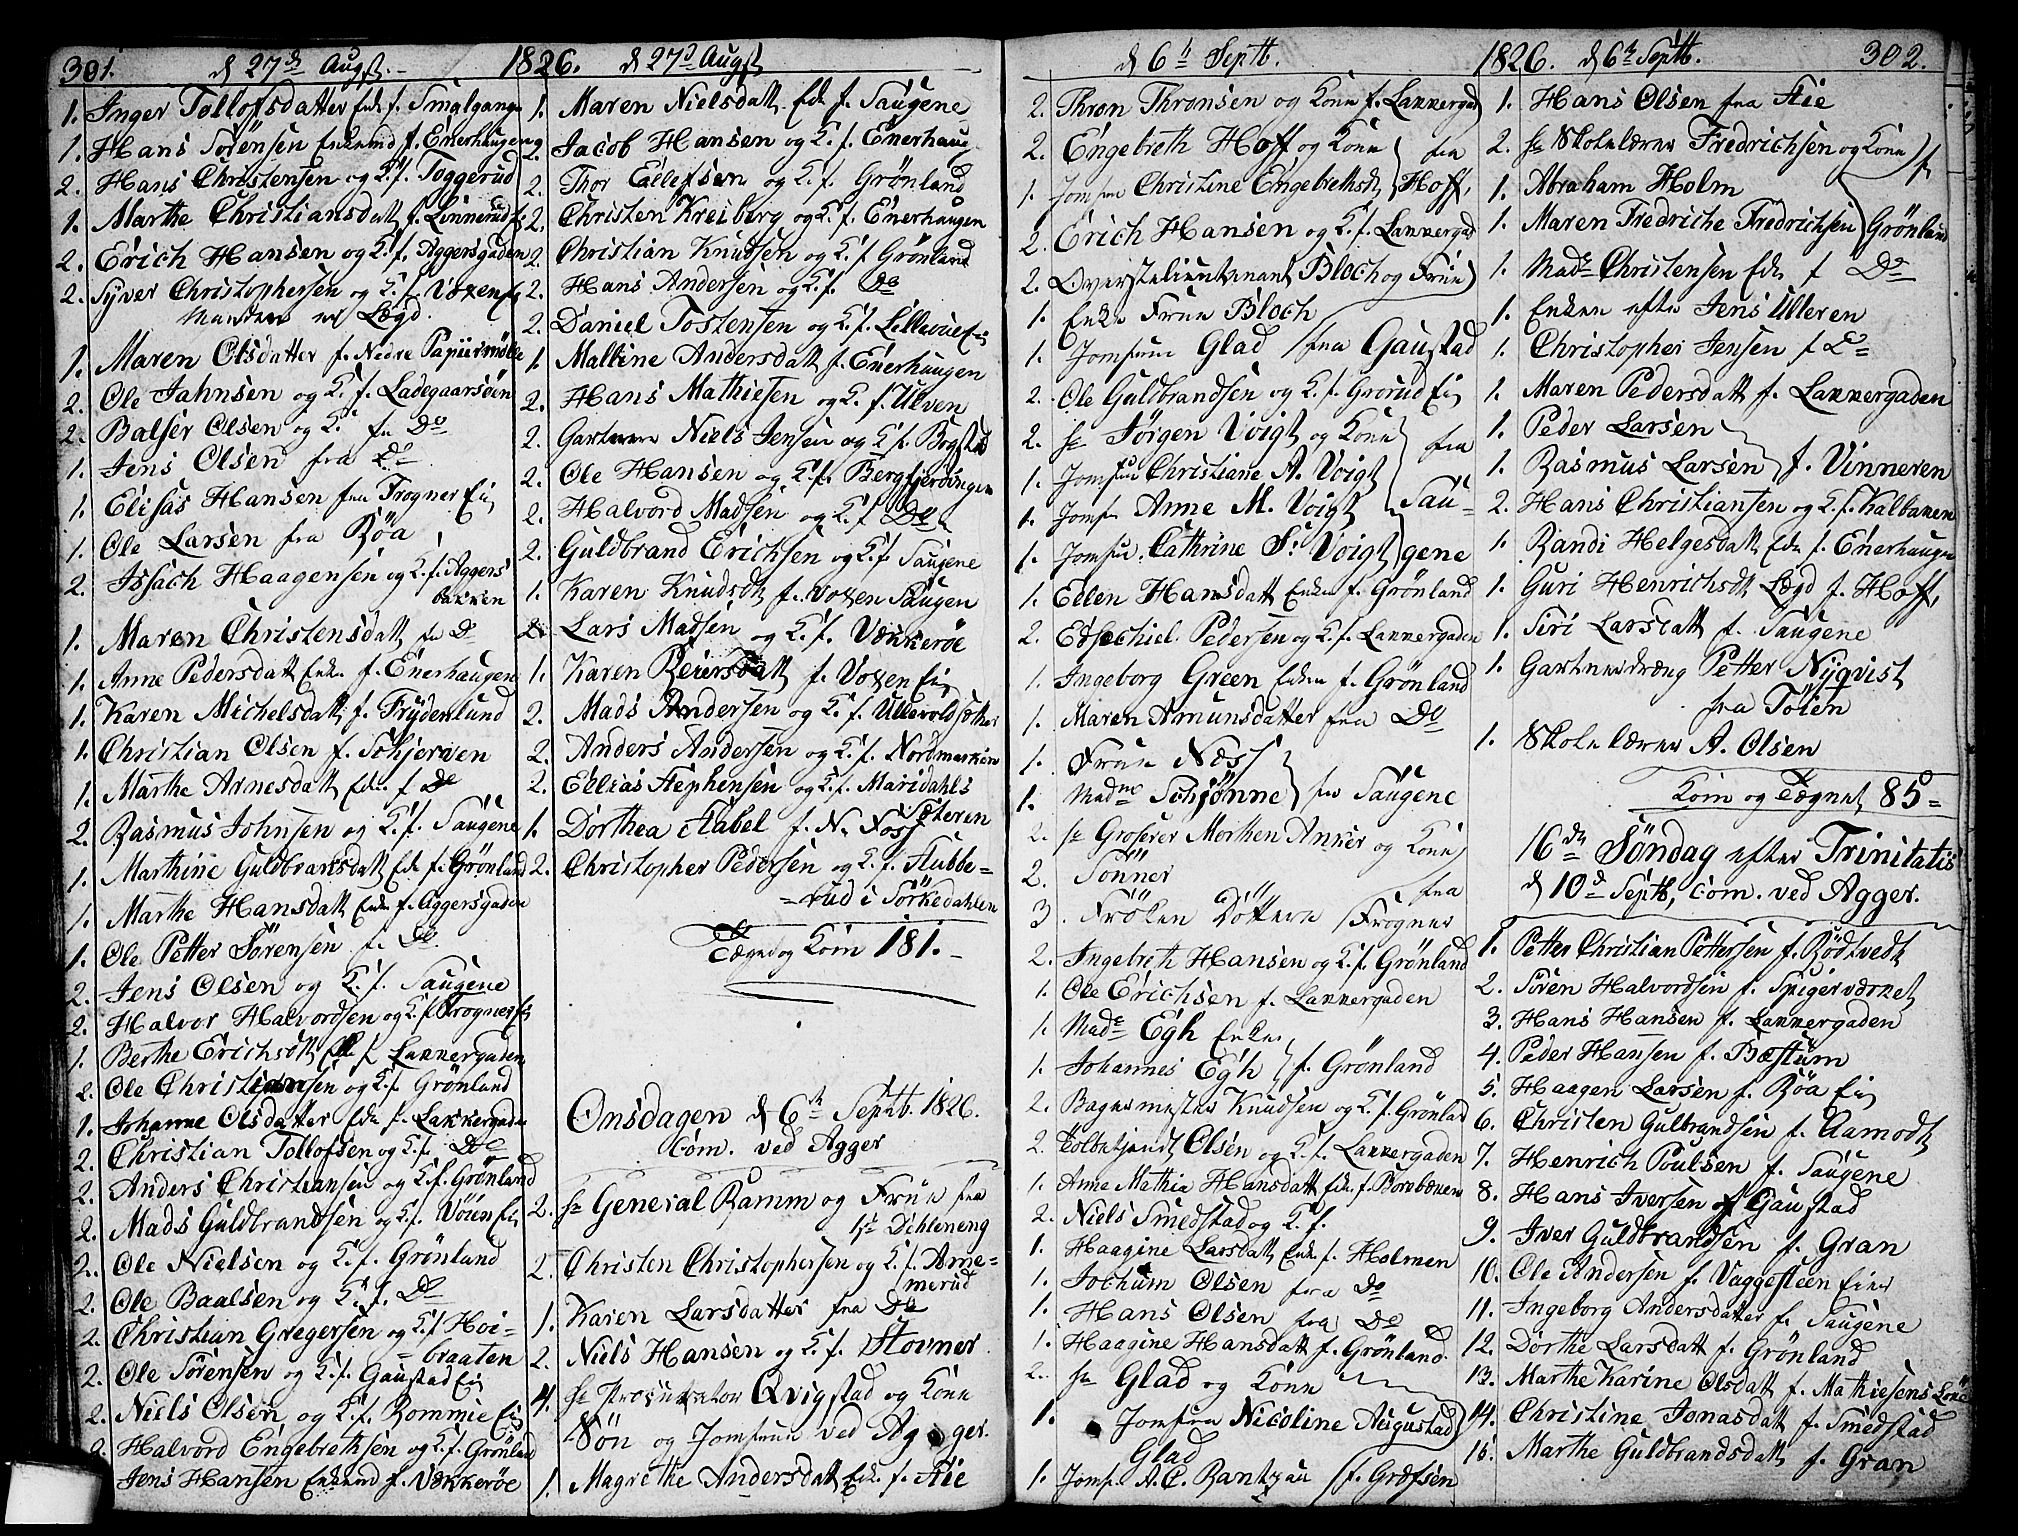 301. d 27de Augst. 1826. d 27d Augst
1. Inger Tollofsdatter Enk. f. Smalgangen
1. Hans Sørensen Enkemd f. Enerhaugen
2. Hans Christensen og K. f. Toggerud
1. Marthe Christiansdatt f. Linnerud Ei
2. Erich Hansen og K. f. Aggersgaden
2. Syver Christophersen og K. f. Voxen Ei
Manden er Lægd.
1. Maren Olsdatter f. Nedre Papiermølle
2. Ole Jahnsen og K. f. Ladegaarsøen
2. Balser Olsen og K. fr Do
1. Jens Olsen fra Do
1. Elisas Hansen fra Frogner Ei
1. Ole Larsen fra Røa
2. Issach Haagensen og K. f. Aggers
bakken
1. Maren Christensdatt fr Do
1. Anne Pedersdatt Enk. f. Enerhaugen
1. Karen Michelsdatt f. Frydenlund
1. Christian Olsen f. Schjerven
1. Marthe Arnesdatt Enk. f Do
2. Rasmus Johnsen og K. f. Saugene
1. Mathine Guldbransdatt Enk f. Grønland
1. Marthe Hansdatt Enk. f. Aggersgaden
1. Ole Petter Sørensen f. Do
2. Jens Olsen og K. f. Saugene
2. Halvor Halvordsen og K. f. Frogner Ei
1. Berthe Erichsdtt Enk f. Lakkergaden
2. Ole Christiansen og K. f. Grønland
1. Johanne Olsdatter Enk f. Lakkergaden
2. Christian Tollofsen og K. f. Do
2. Anders Christiansen og K. f. Grønland
2. Mads Guldbrandsen og K. f. Vøien Ei
2. Ole Nielsen og K. f. Grønland
2. Ole Baalsen og K. f. Do
2. Christian Gregersen og K. f Høi-
braaten
2. Ole Sørensen og K. f. Gaustad Ei
2. Niels Olsen og K. f. Rommie Ei
2. Halvord Engebrethsen og K. f. Grønland
Jens Hansen Enkemd f. Vækkerøe
1. Maren Nielsdatt Enk f. Saugene
2. Jacob Hansen og K. f. Enerhaug
2. Thor Ellefsen og K. f. Grønland
2. Christen Kreiberg og K. f. Enerhaugen
2. Christian Knudsen og K. f. Grønland
2. Hans Andersen og K. f. Do
2. Daniel Tostensen og K. f. Lilleviie Ei
1. Malline Andersdatt f. Enerhaugen
2. Hans Mathiesen og K. f. Ulven
2. Gartnere Niels Jensen og K. f. Bogstad
2. Ole Hansen og K. f. Bergfjerdingen
2. Halvord Madsen og K. f Do
2. Guldbrand Erichsen og K. f Saugene
1. Karen Knudsdtt f. Voxen Saugen
2. Lars Madsen og K. f. Vækkerøe
1. Karen Reiersdatt f. Voxen Ei
2. Mads Andersen og K. f. Ullevoldsæther
2. Anders Andersen og K. f. Nordmarken
2. Ellias Stephensen og K. f. Maridahls
Sæteren
1. Dorthea Aabel f. N. Foss
2. Christopher Pedersen og K. f. Stubbe-
-rud i Sørkedahlen
Tægnd og Kom 181.
Onsdagen d 6te Septb. 1826.
Com. ved Agger
2. Hr General Ramm og Frue fra
Hr Dehleneng
2. Christen Christophersen og K. f. Arne-
merud
1. Karen Larsdatter fra Do
2. Niels Hansen og K. f. Stovner
4. Hr Procurator Qvigstad og Kone
Søn og Jomfrue ved Agger.
1. Magrethe Andersdatt Enk. f. Aie
d 6te Septb. 1826. d 6te Septb. 302.
2. Thron Thronsen og Kone f. Lakkergad
2. Engebreth Hoff og Kone fra
1. Jomfrue Christine Engebrethsdt Hoff,
2. Erich Hansen og K. f. Lakkergad
2. Overstelieutenant Bloch og Frue
1. Enke Frue Bloch
1. Jomfrue Glad fra Gaustad
2. Ole Guldbrandsen og K. f. Grorud Ei
2. Hr Jørgen Voigt og Kone fra
1. Jomfrue Christiane A. Voigt
1. Jomfr Anne M. Voigt Sau-
1. Jomfrue Cathrine S. Voigt gene
1. Ellen Hansdatt Enke f. Grønland
2. Etsechiel Pedersen og K. f. Lakkergaden
1. Ingeborg Green Enke f. Grønland
1. Maren Amunsdatter fra Do
1. Frue Næss
1. Madme Schjønne fra Saugene
2. Hr Groserer Morthen Anker og Kone
2. Sønner fra
3. Frøken Døttere Frogner
2. Ingebreth Hansen og K. f. Grønland
1. Ole Erichsen f. Lakkergaden
1. Made Egh Enke
1. Johannes Egh f. Grønland
2. Bagermester Knudsen og K. f. Grønland
2. Toldbetjendt Olsen og K. f. Lakkergaden
1. Anne Mathia Hansdatt Enk. f. Bornbænen
2. Niels Smedstad og K. f.
1. Haagine Larsdatt Enk. f. Holmen
1. Jochum Olsen fra Do
1. Hans Olsen fra Do
1. Haagine Hansdatt f. Grønland.
2. Hr Glad og Kone
1. Jomfrue Nicoline Augustad
Glad
1. Jomfr. A. C. Rantzau f. Græfsen
1. Hans Olsen fra Aie
2. Hr Skolelærer Fredrichsen og Kone f
1. Abraham Holm
1. Maren Fredriche Fredrichsen Grønland
1. Made Christensen Enk f Do
1. Enken efter Jens Ulleren
1. Christopher Jensen f Do
1. Maren Pedersdatt f. Lakkergaden
1. Peder Larsen
1. Rasmus Larsen f. Vinneren
2. Hans Christiansen og K. f. Kalbakken
1. Randi Helgesdatt Enk f. Enerhaugen
1. Guri Henrichsdt Lægd f. Hoff,
1. Siri Larsdatt f. Saugene
1. Gartnerdræng Petter Nyqvist
fra Tøien
1. Skolelærer A. Olsen
Kom og Tægnet 85
16de Søndag efter Trinitatis
d 10d Septb, Com. ved Agger.
1. Petter Christian Pettersen f. Rødtvedt
2. Søren Halvordsen f. Spigerværket
3. Hans Hansen f. Lakkergaden
4. Peder Hansen f. Bæstum
5. Haagen Larsen f. Røa Ei
6. Christen Gulbrandsen f. Aamodt
7. Henrich Poulsen f. Saugene
8. Hans Iversen f Gaustad
9. Iver Guldbrandsen f. Gran
10. Ole Andersen f. Vaggesteen Eier
11. Ingeborg Andersdatter f. Saugene
12. Dorthe Larsdatt f. Grønland
13. Marthe Karine Olsdatt f. Mathiesens Løke
14. Christine Jonasdatt f. Smedstad
15. Marthe Guldbrandsdatt f. Gran